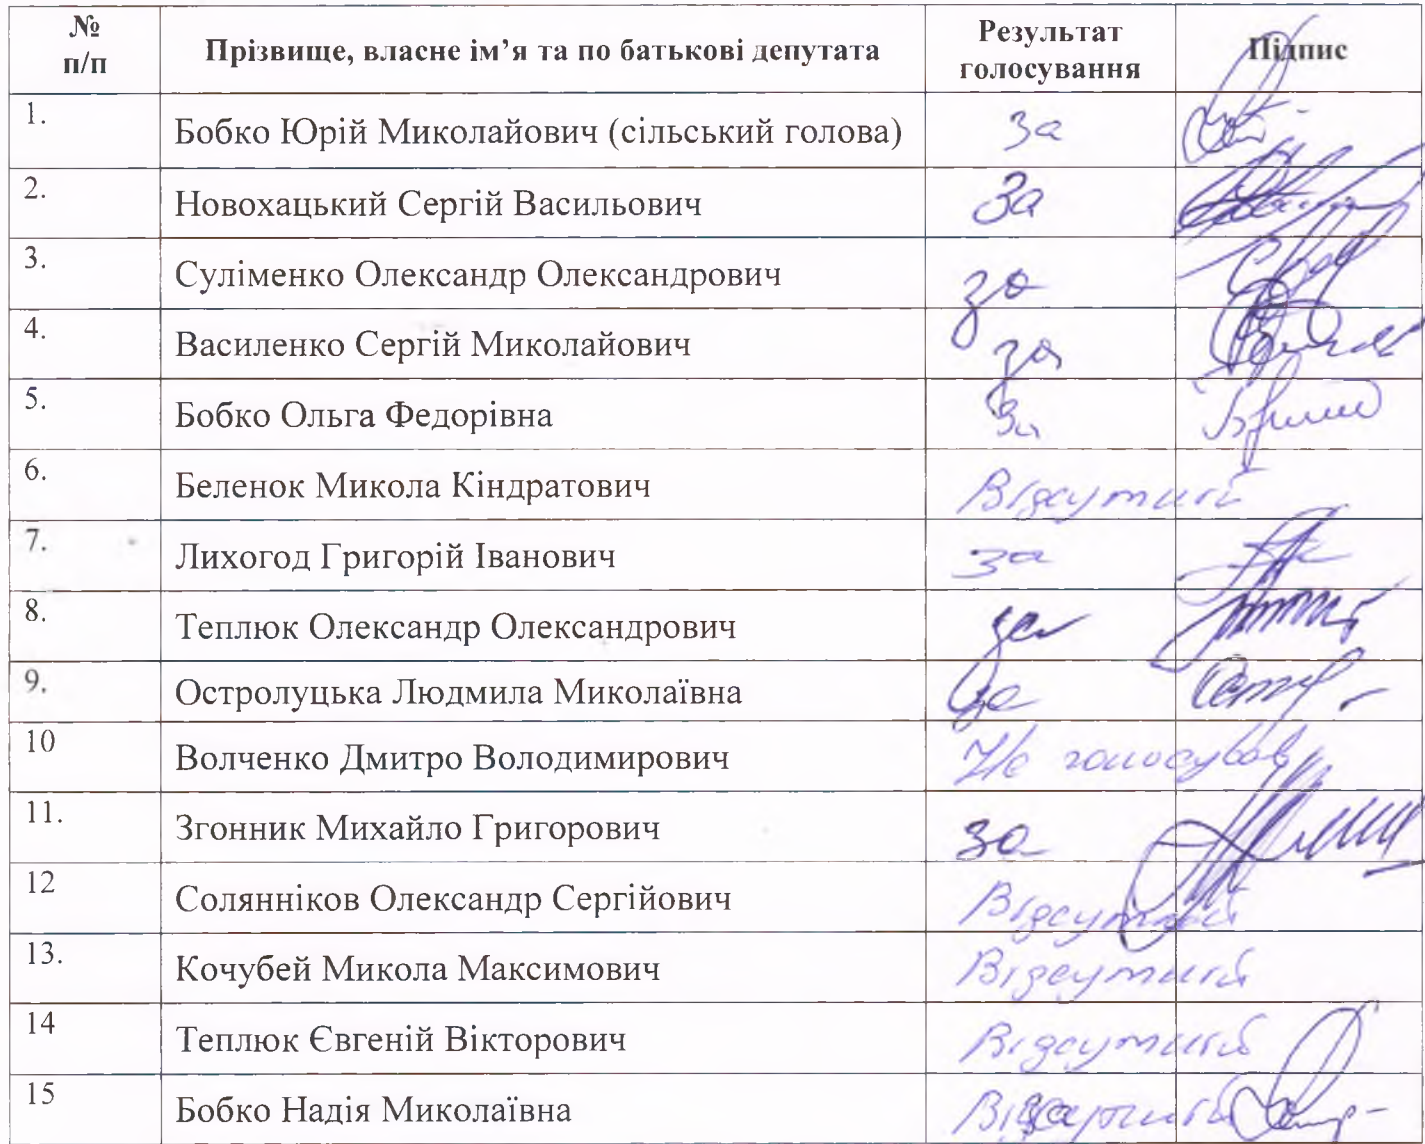 № п/п Прізвище, власне ім’я та по батькові депутата Результат голосування Підпис
1. Бобко Юрій Миколайович (сільський голова) За
2. Новохацький Сергій Васильович За
3. Суліменко Олександр Олександрович за
4. Василенко Сергій Миколайович за
5. Бобко Ольга Федорівна За
6. Беленок Микола Кіндратович Відсутній
7. Лихогод Григорій Іванович за
8. Теплюк Олександр Олександрович за
9. Остролуцька Людмила Миколаївна за
10 Волченко Дмитро Володимирович Не голосував
11. Згонник Михайло Григорович за
12 Солянніков Олександр Сергійович Відсутній
13. Кочубей Микола Максимович Відсутній
14 Теплюк Євгеній Вікторович Відсутній
15 Бобко Надія Миколаївна Відсутній за